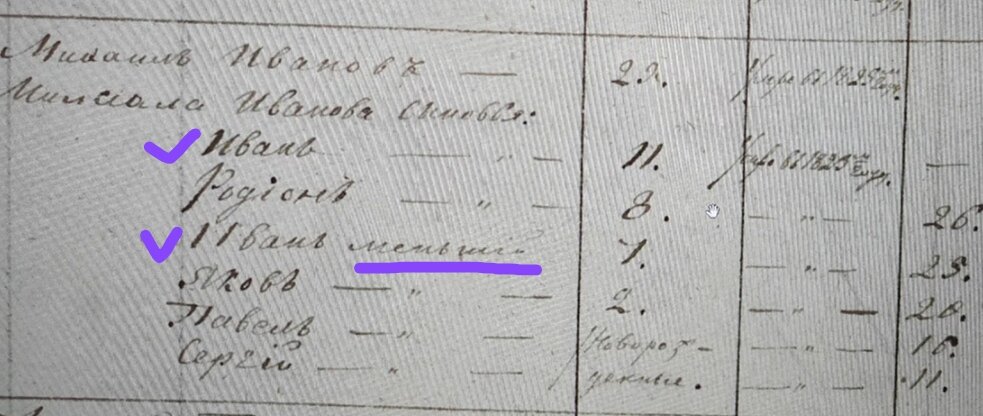 Михаилъ Ивановъ — 29. Умре въ 1825мъ году.
Михаила Иванова сыновья:
Иванъ — " — 11. Умре въ 1825мъ году. —
Родіонъ — " — 8. — " — 26.
Иванъ меньшій 7. — " — 25.
Яковъ — " — 2. — " — 20.
Павелъ — " — Новорож- — " — 16.
Сергій — " — денные. — " — 11.